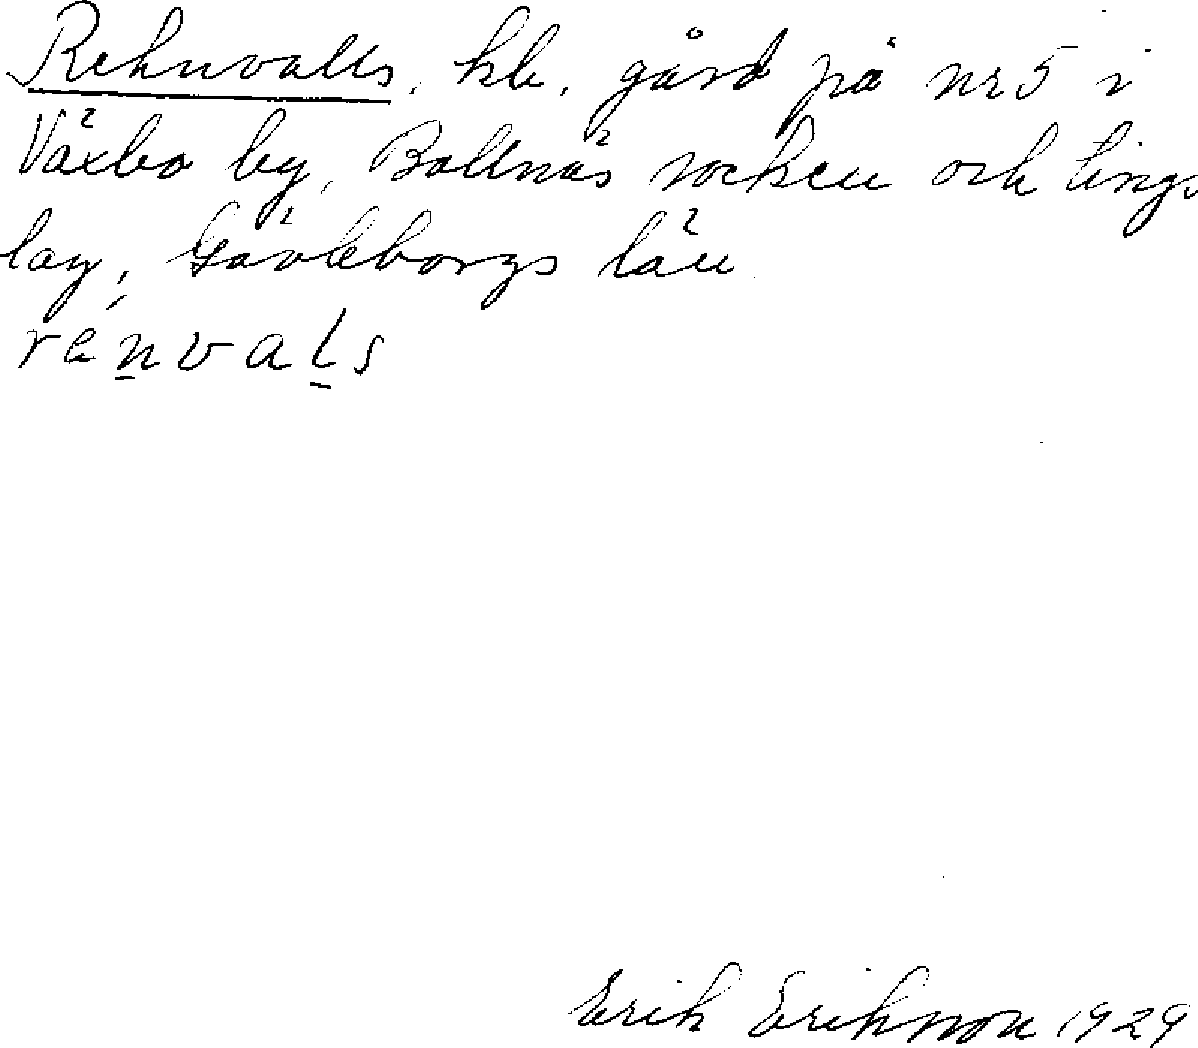 Rehnvalls, hb. gård på nr 5 i
Växbo by, Bollnäs socken och tings
lag, Gävleborgs län
rénvals
Erik Eriksson 1929